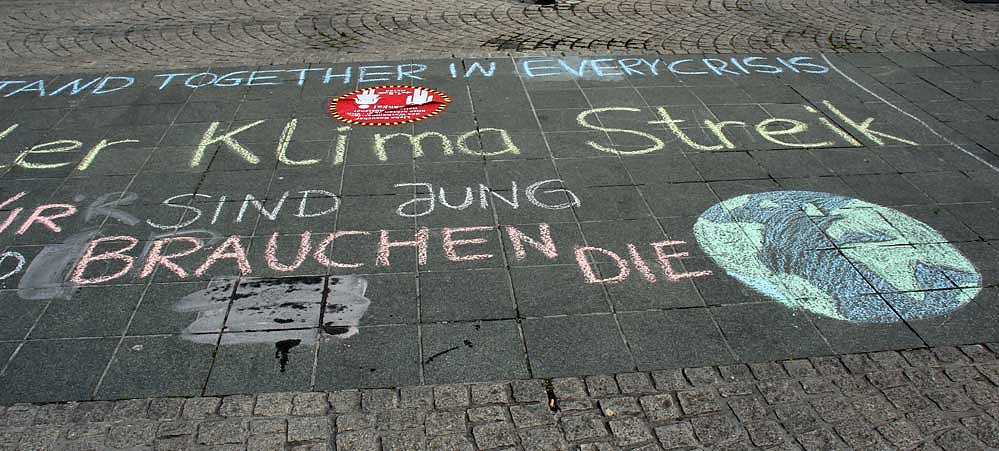 TAND TOGETHER IN EVERY CRISIS
er Klima Streik
WIR SIND JUNG
BRAUCHEN DIE